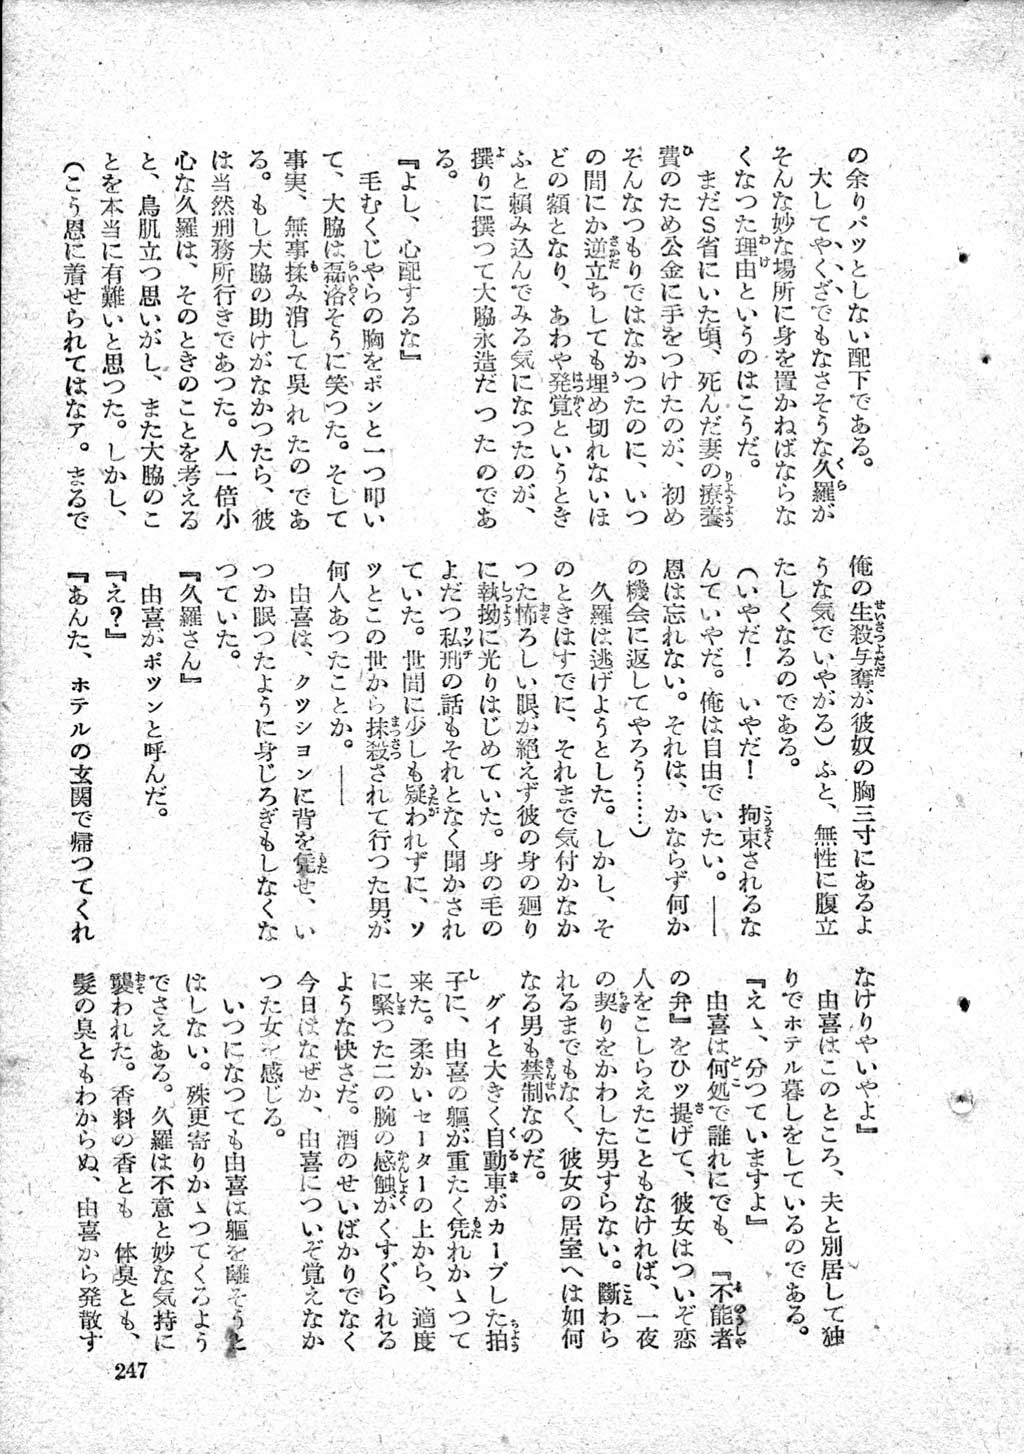 の余りパッとしない配下である。
大してやくざでもなさそうな久羅が
そんな妙な場所に身を置かねばならな
くなつた理由というのはこうだ。
まだＳ省にいた頃、死んだ妻の療養
費のため公金に手をつけたのが、初め
そんなつもりではなかつたのに、いつ
の間にか逆立ちしても埋め切れないほ
どの額となり、あわや発覚というとき
ふと頼み込んでみる気になつたのが、
撰りに撰つて大脇永造だつたのであ
る。
『よし、心配するな』
毛むくじやらの胸をポンと一つ叩い
て、大脇は磊落そうに笑つた。そして
事実、無事揉み消して呉れたのであ
る。もし大脇の助けがなかつたら、彼
は当然刑務所行きであつた。人一倍小
心な久羅は、そのときのことを考える
と、鳥肌立つ思いがし、また大脇のこ
とを本当に有難いと思つた。しかし、
（こう恩に着せられてはなァ。まるで
俺の生殺与奪が彼奴の胸三寸にあるよ
うな気でいやがる）ふと、無性に腹立
たしくなるのである。
（いやだ！　いやだ！　拘束されるな
んていやだ。俺は自由でいたい。――
恩は忘れない。それは、かならず何か
の機会に返してやろう……）
久羅は逃げようとした。しかし、そ
のときはすでに、それまで気付かなか
つた怖ろしい眼が絶えず彼の身の廻り
に執拗に光りはじめていた。身の毛の
よだつ私刑の話もそれとなく聞かされ
ていた。世間に少しも疑われずに、ソ
ッとこの世から抹殺されて行つた男が
何人あつたことか。――
由喜は、クッションに背を凭せ、い
つか眠つたように身じろぎもしなくな
つていた。
『久羅さん』
由喜がポツンと呼んだ。
『え？』
『あんた、ホテルの玄関で帰つてくれ
なけりやいやよ』
由喜はこのところ、夫と別居して独
りでホテル暮しをしているのである。
『えゝ、分つていますよ』
由喜は何処で誰れにでも、『不能者
の弁』をひッ提げて、彼女はついぞ恋
人をこしらえたこともなければ、一夜
の契りをかわした男すらない。断わら
れるまでもなく、彼女の居室へは如何
なる男も禁制なのだ。
グイと大きく自動車がカーブした拍
子に、由喜の軀が重たく凭れかゝつて
来た。柔かいセーターの上から、適度
に緊つた二の腕の感触がくすぐられる
ような快さだ。酒のせいばかりでなく
今日はなぜか、由喜についぞ覚えなか
つた女を感じる。
いつになつても由喜は軀を離そうと
はしない。殊更寄りかゝつてくるよう
でさえある。久羅は不意と妙な気持に
襲われた。香料の香とも　体臭とも、
髪の臭ともわからぬ、由喜から発散す
247